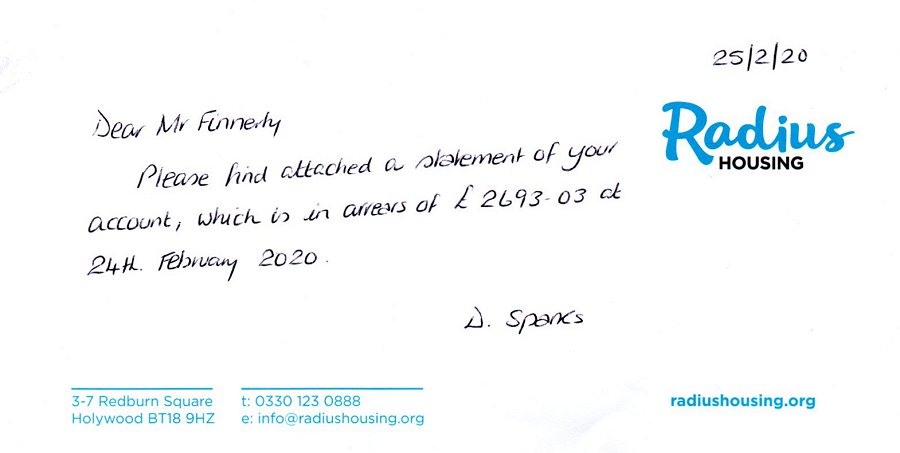 25/2/20
Radius
HOUSING
Dear Mr Finnerty
Please find attached a statement of your
account, which is in arrears of £2693-03 at
24th. February 2020.
D. Spanes
3-7 Redburn Square
Holywood BT18 9HZ
t: 0330 123 0888
e: info@radiushousing.org
radiushousing.org